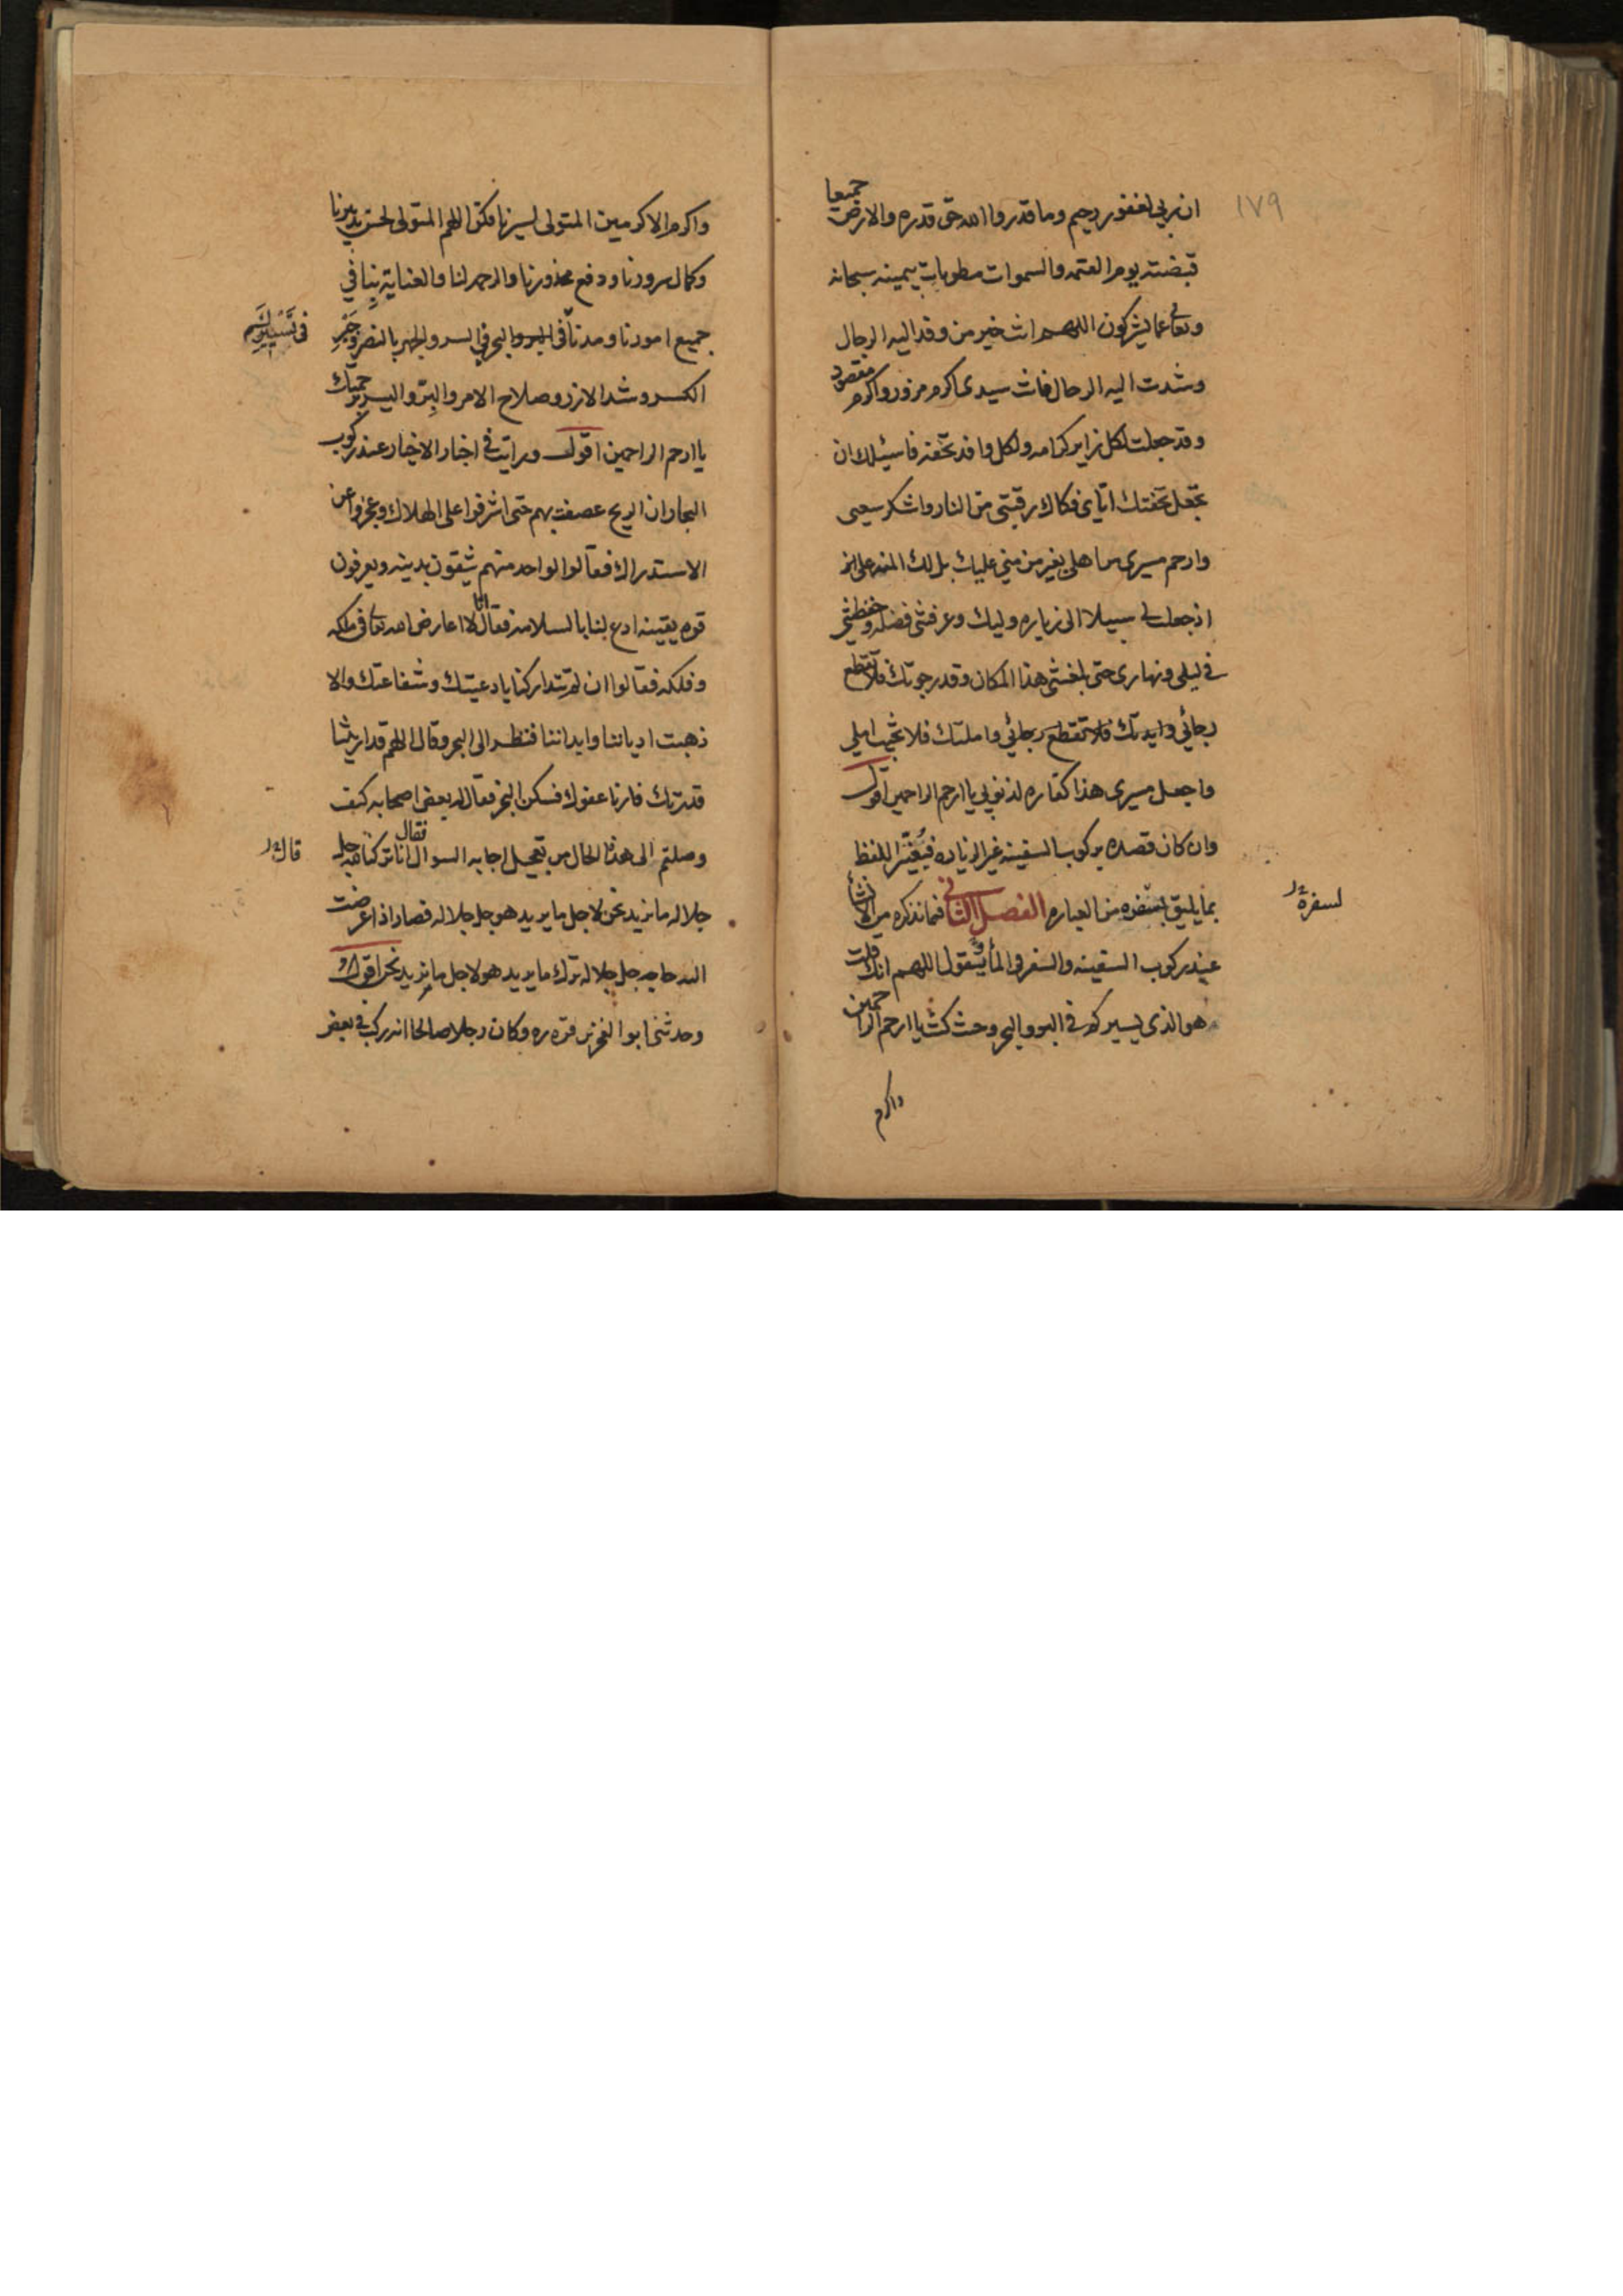 ١٧٩
ان ربي لغفور رحيم وما قدروا الله حق قدره والارض جميعا
قبضته يوم القيمه والسموات مطويات بيمينه سبحانه
وتعالى عما يشركون اللهم انت خير من وفد اليه الرجال
وشدت اليه الرحال فانت سيدى اكرم مزور واكرم مقصود
وقد جعلت لكل زاير كرامه ولكل وافد تحفه فاسئلك ان
تجعل تحفتك اياى فكاك رقبتى من النار واشكر سعيى
وارحم مسيرى من اهلى بغير من منى عليك بل لك المنه على
اذ جعلت لى سبيلا الى زياره وليك وعرفتنى فضله وحفظتنى
فى ليلى ونهارى حتى بلغتنى هذا المكان وقد رجوتك فلا تقطع
رجائي و فلا تقطع رجائي واملتك فلا تخيب املي
واجعل مسيرى هذا كفاره لذنوبي يا ارحم الراحمين اقول
وان كان قصده بركوب السفينه غير الزياره فيغير اللفظ
بما يليق بسفره من العباره الفصل الثانى فيما نذكره من الانشأ
لسفرة
عند ركوب السفينه والسفر في المأ فتقول اللهم انك قلت
هو الذى يسيركم فى البر والبحر وحيث يا ارحم الراحمين
واكرم
واكرم الاكرمين المتولى لسيرنا فكن اللهم المتولى لحسن تدبيرنا
وكمال سرورنا ودفع محذورنا والرحمه لنا والعنايه بنا في
جميع امورنا ومدنا في البر والبحر في السر والجهر بالنصر وجبر
الكسر وشد الازر وصلاح الامر والبر واليسر برحمتك
يا ارحم الراحمين اقول ورايت فى اخبار الاخيار عند ركوب
البحار ان الريح عصفت بهم حتى اشرفوا على الهلاك وعجزوا عن
الاستدراك فقالوا لواحد منهم يثقون بدينه ويعرفون
قوه يقينه ادع لنا بالسلامه فقال انا لا اعارض الله تعالى فى ملكه
وفلكه فقالوا ان لم تتداركنا بادعيتك وشفاعتك والا
ذهبت ادياننا وابداننا فنظر الى البحر وقال اللهم قد اريتنا
قدرتك فارنا عفوك فسكن البحر فقال له بعض اصحابه كيف
وصلتم الى هذا الحال من تعجيل اجابه السوال فقال انا تركنا جل
قال
جلاله ما نريد نحن لاجل ما يريد هو جل جلاله فصار اذا عرضت
اليه حاجه جل جلاله ترك ما يريد هو لاجل ما نريد نحن اقول
وحدثنى ابو وكان رجلا صالحا انه ركب فى بعض